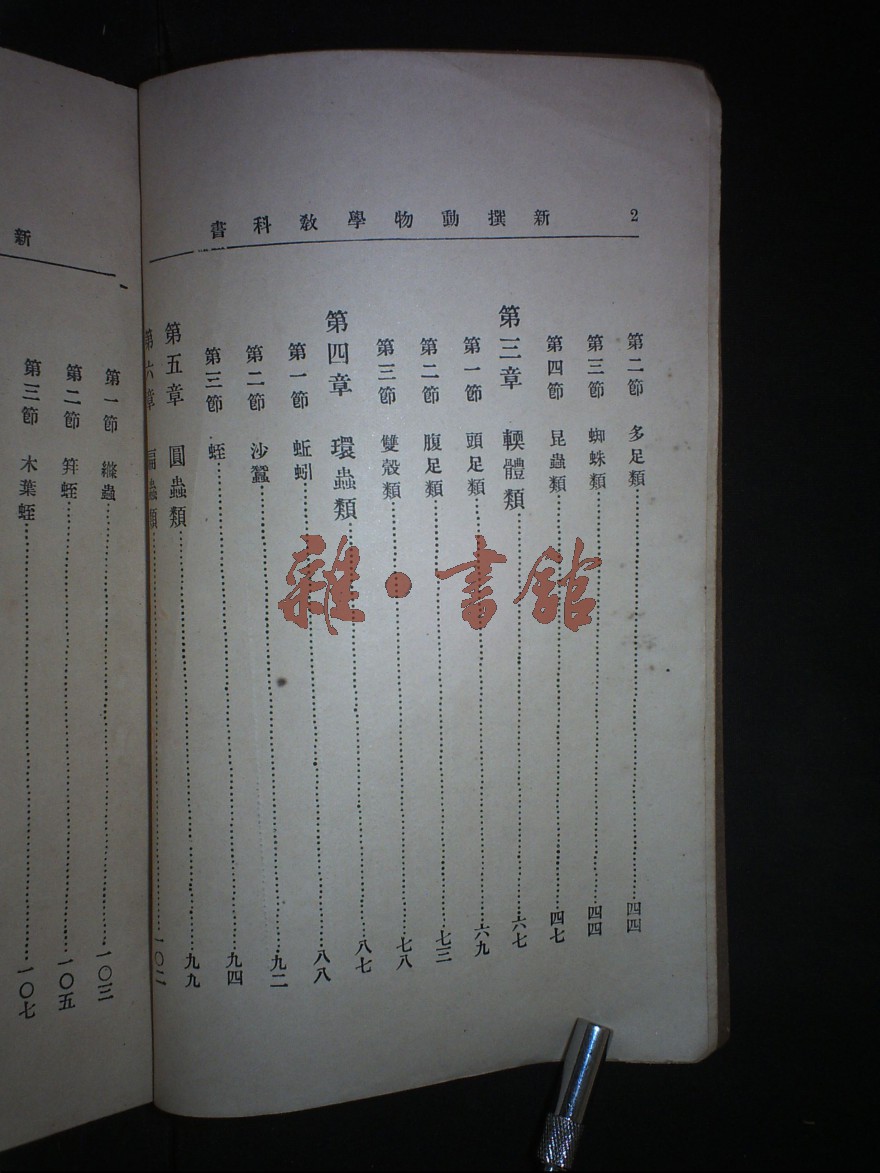 新撰動物學教科書 2
第二節 多足類 四四
第三節 蜘蛛類 四四
第四節 昆蟲類 四七
第三章 輭體類 六七
第一節 頭足類 六九
第二節 腹足類 七三
第三節 雙殼類 七八
第四章 環蟲類 八七
第一節 蚯蚓 八八
第二節 沙蠶 九二
第三節 蛭 九四
第五章 圓蟲類 九九
第六章 扁蟲類 一〇二
新
第一節 絛蟲 一〇三
第二節 蛭 一〇五
第三節 木葉蛭 一〇七
雜·書館